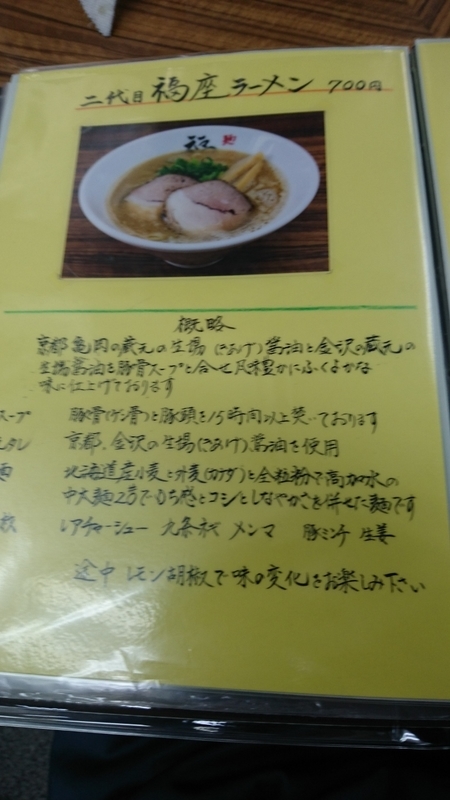 二代目 福座ラーメン 700円
福
概略
京都亀岡の蔵元の生揚(きあげ)醤油と金沢の蔵元の
生揚醤油を豚骨スープと合せ風味豊かにふくよかな
味に仕上げております
スープ 豚骨(ゲン骨)と豚頭を15時間以上焚いております
タレ 京都、金沢の生揚(きあげ)醤油を使用
麺 北海道産小麦と外麦(カナダ)と全粒粉で高加水の
中太麺 もち感とコシとしなやかさを併せた麺です
レアチャーシュー 九条ネギ メンマ 豚ミンチ 生姜
途中 レモン胡椒で味の変化をお楽しみ下さい